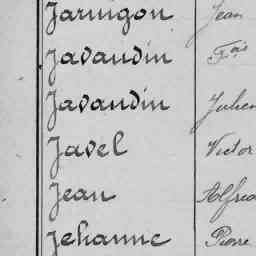 Jarnigon Jean
Javaudin Fçois
Javaudin Julien
Javel Victor
Jean Alfred
Jehanne Pierre